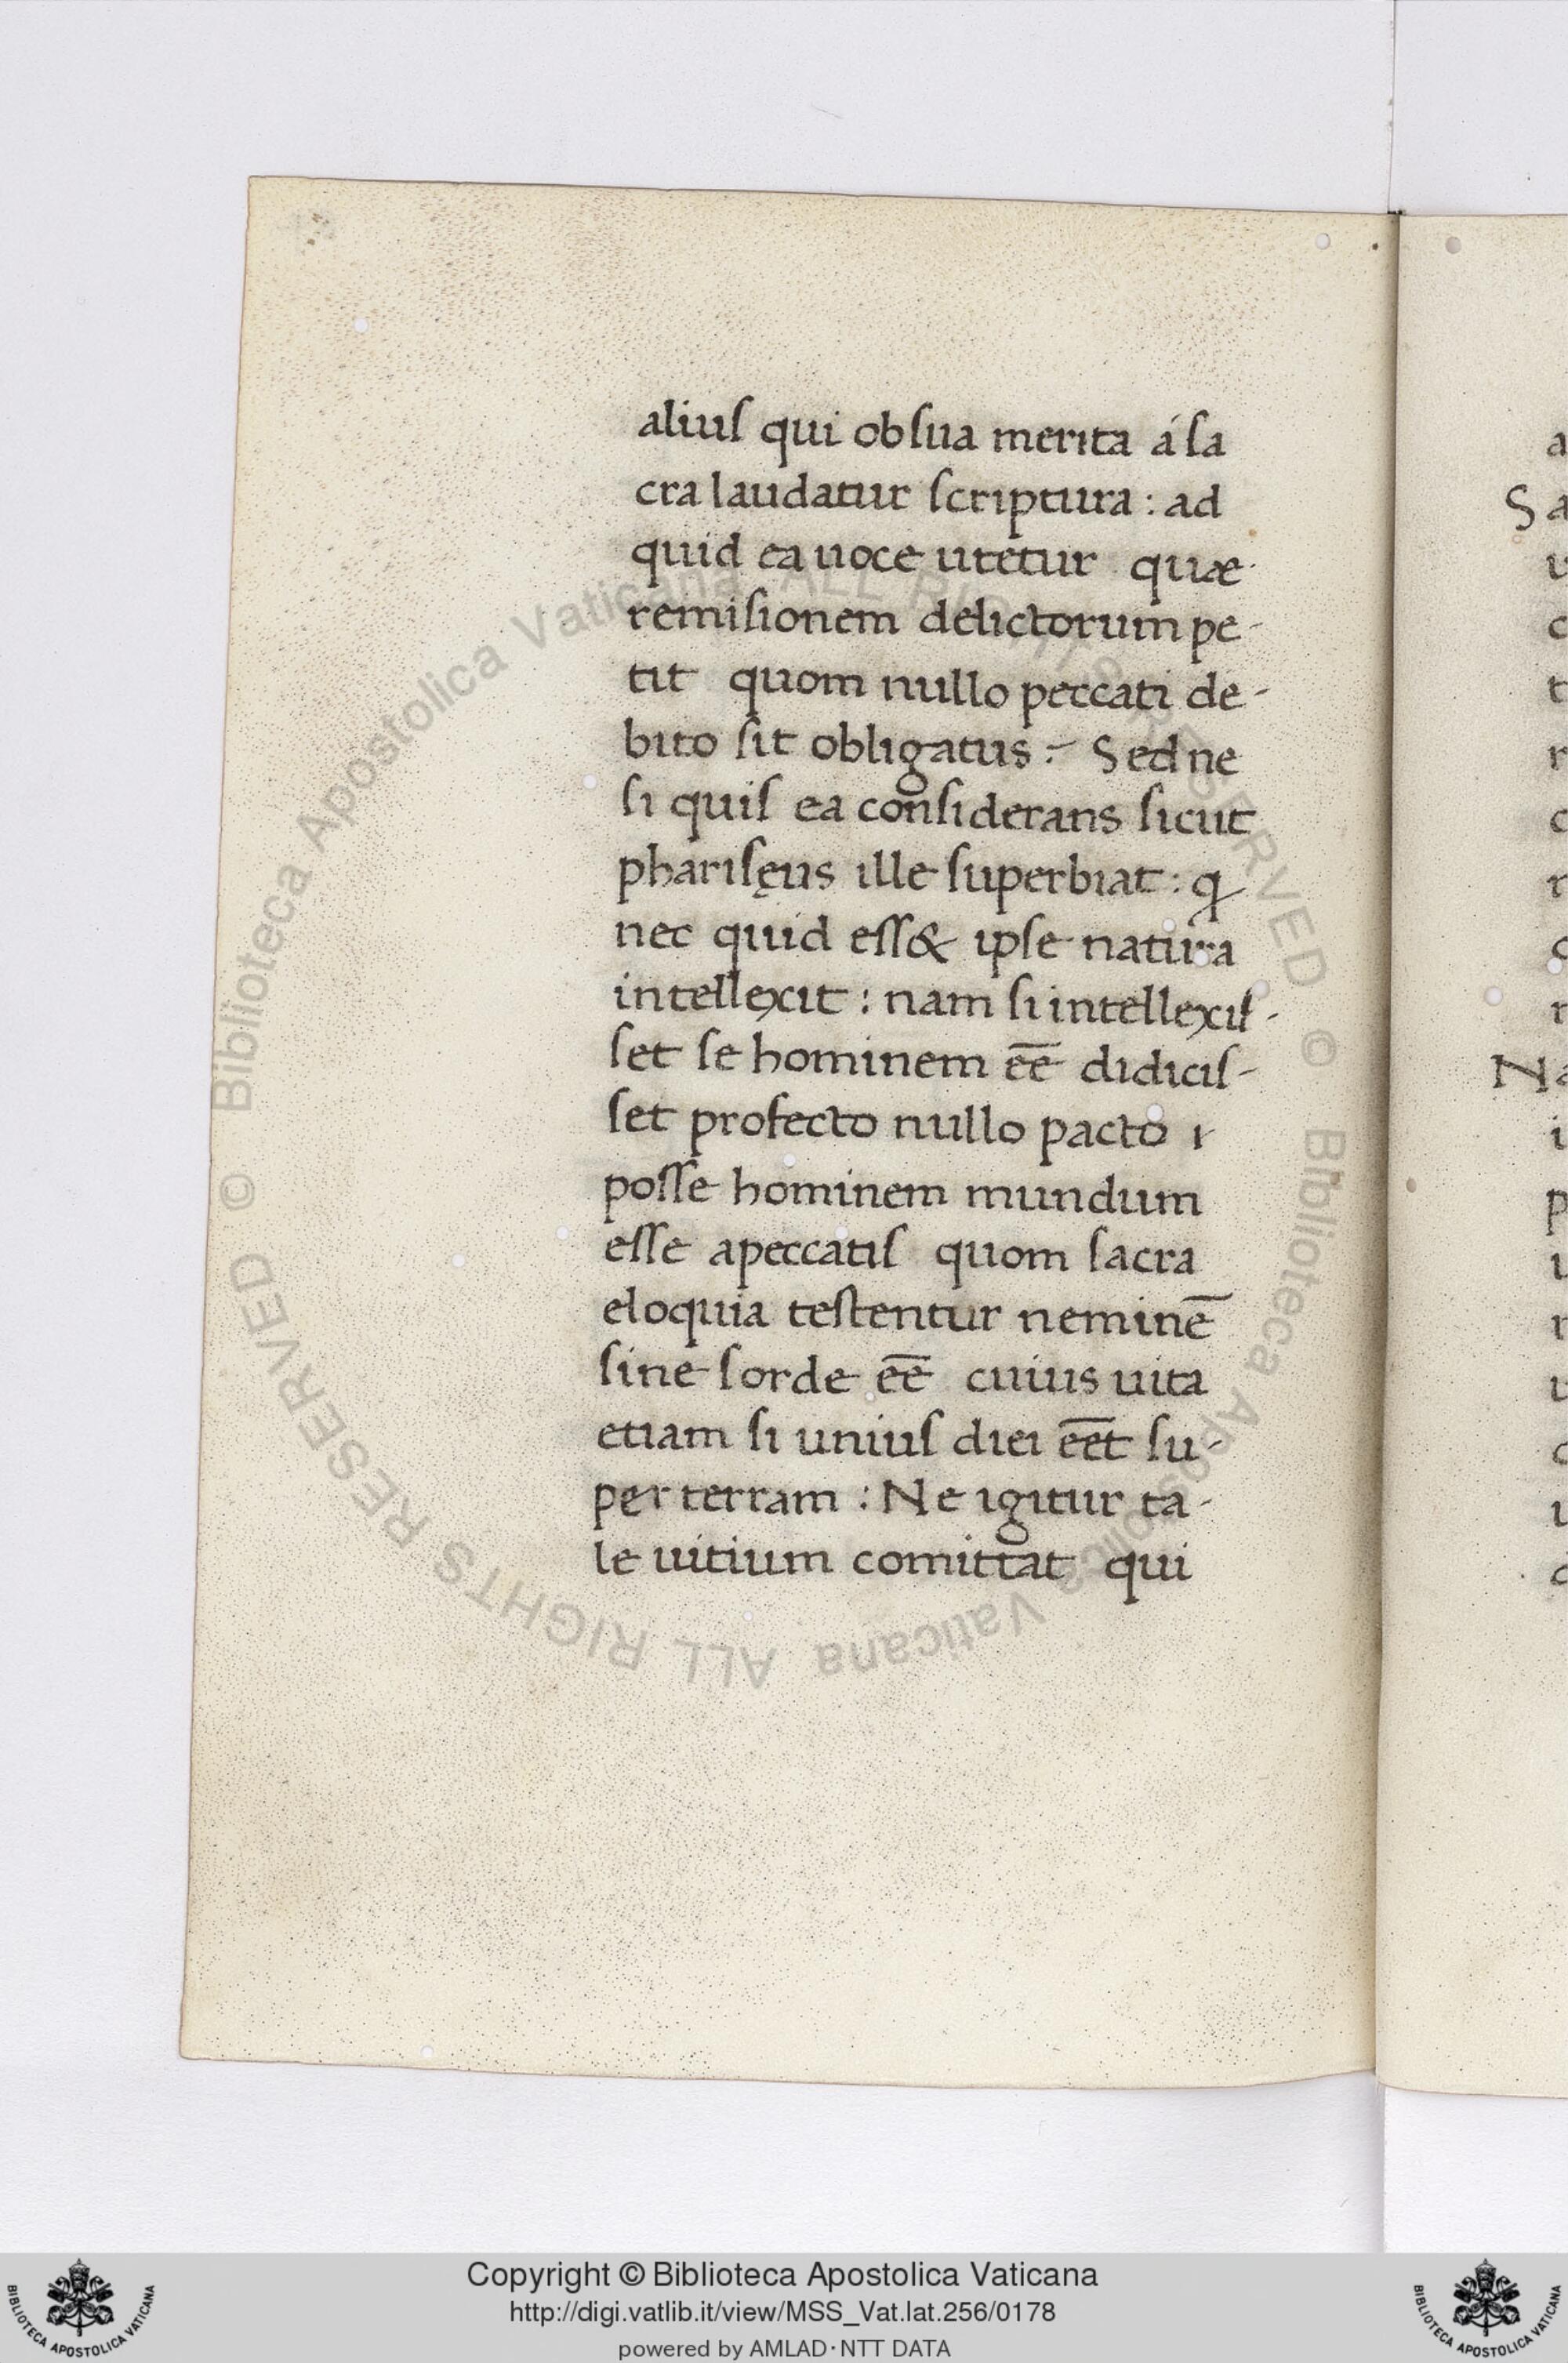 aliuſ qui ob ſua merita á ſa
cra laudatur ſcriptura : ad
quid ea uoce utetur quæ
remiſionem delictorum pe-
tit quom nullo peccati de-
bito ſit obligatus :- Sed ne
ſi quiſ ea conſiderans ſicut
phariſęus ille ſuperbiat : ꝙ
nec quid eſſ& ipſe natura
intellexit : nam ſi intellexiſ-
ſet ſe hominem ēē didiciſ-
ſet profecto nullo pacto ı
poſſe hominem mundum
eſſe apeccatiſ quom ſacra
eloquia teſtentur neminē
ſine ſorde ēē cuius uita
etiam ſi uniuſ diei ēēt ſu-
per terram : Ne igitur ta-
le uitium comittat qui
a
Sa
u
c
t
r
c
r
c
r
Na
i
p
u
r
u
c
u
c
© Biblioteca Apostolica Vaticana ALL RIGHTS RESERVED © Biblioteca Apostolica Vaticana ALL RIGHTS RESERVED
Copyright © Biblioteca Apostolica Vaticana
http://digi.vatlib.it/view/MSS_Vat.lat.256/0178
powered by AMLAD·NTT DATA
BIBLIOTECA APOSTOLICA VATICANA
BIBLIOTECA APOSTOLICA VATICANA